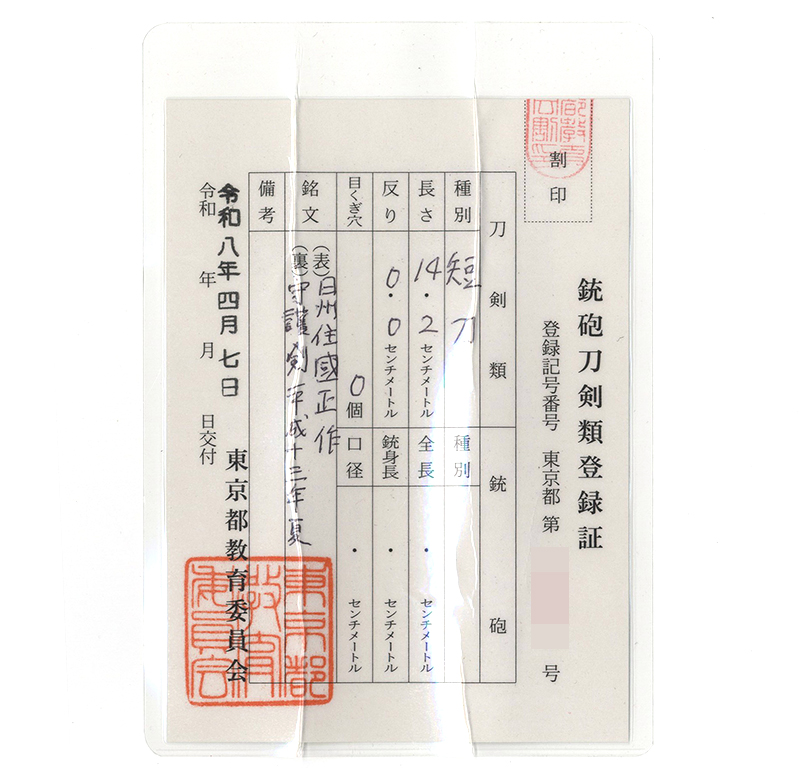 割印
銃砲刀剣類登録証
登録記号番号 東京都 第 号
刀剣類
銃砲
種別 短刀
種別
長さ 14.2センチメートル
全長 ・ センチメートル
反り 0.0センチメートル
銃身長 ・ センチメートル
目くぎ穴 0個
口径 ・ センチメートル
銘文 (表)日州住國正作
(裏)守護剣平成十三年夏
備考
令和八年四月七日
令和 年 月 日交付
東京都教育委員会
東京都教育委員会